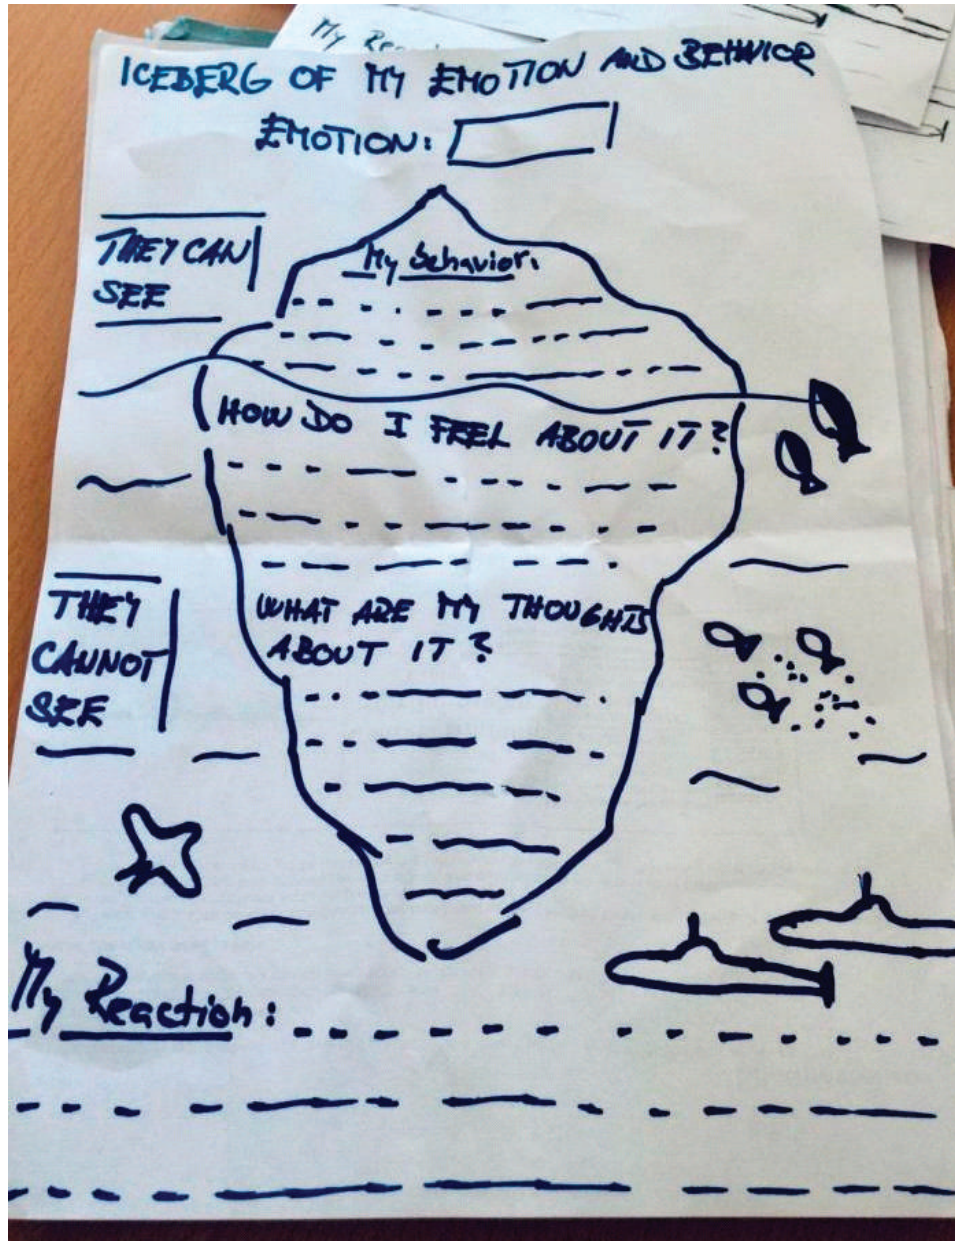 My Rea
ICEBERG OF MY EMOTION AND BEHAVIOR
EMOTION:
THEY CAN
SEE
My behavior:
HOW DO I FEEL ABOUT IT?
THEY
CANNOT
SEE
WHAT ARE MY THOUGHTS
ABOUT IT?
My Reaction: